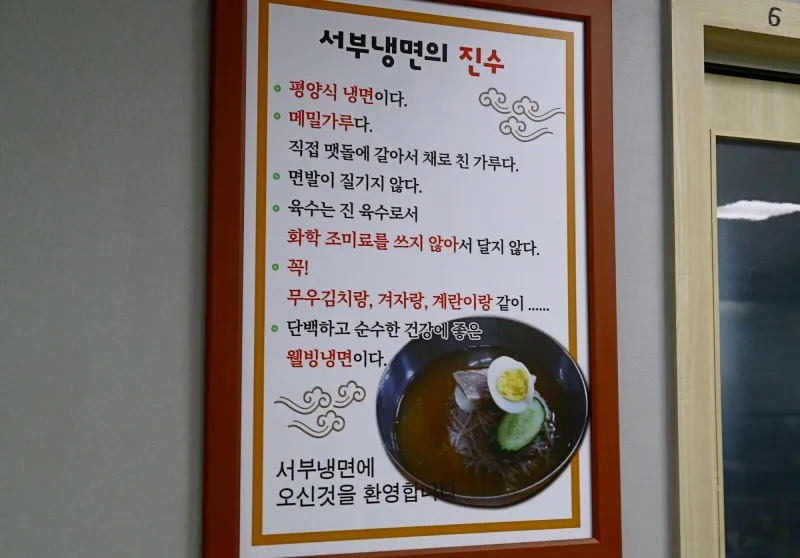 6
서부냉면의 진수
평양식 냉면이다.
메밀가루다.
직접 맷돌에 갈아서 채로 친 가루다.
면발이 질기지 않다.
육수는 진 육수로서
화학 조미료를 쓰지 않아서 달지 않다.
꼭!
무우김치랑, 겨자랑, 계란이랑 같이 ......
단백하고 순수한 건강에 좋은
웰빙냉면이다.
서부냉면에
오신것을 환영합니다